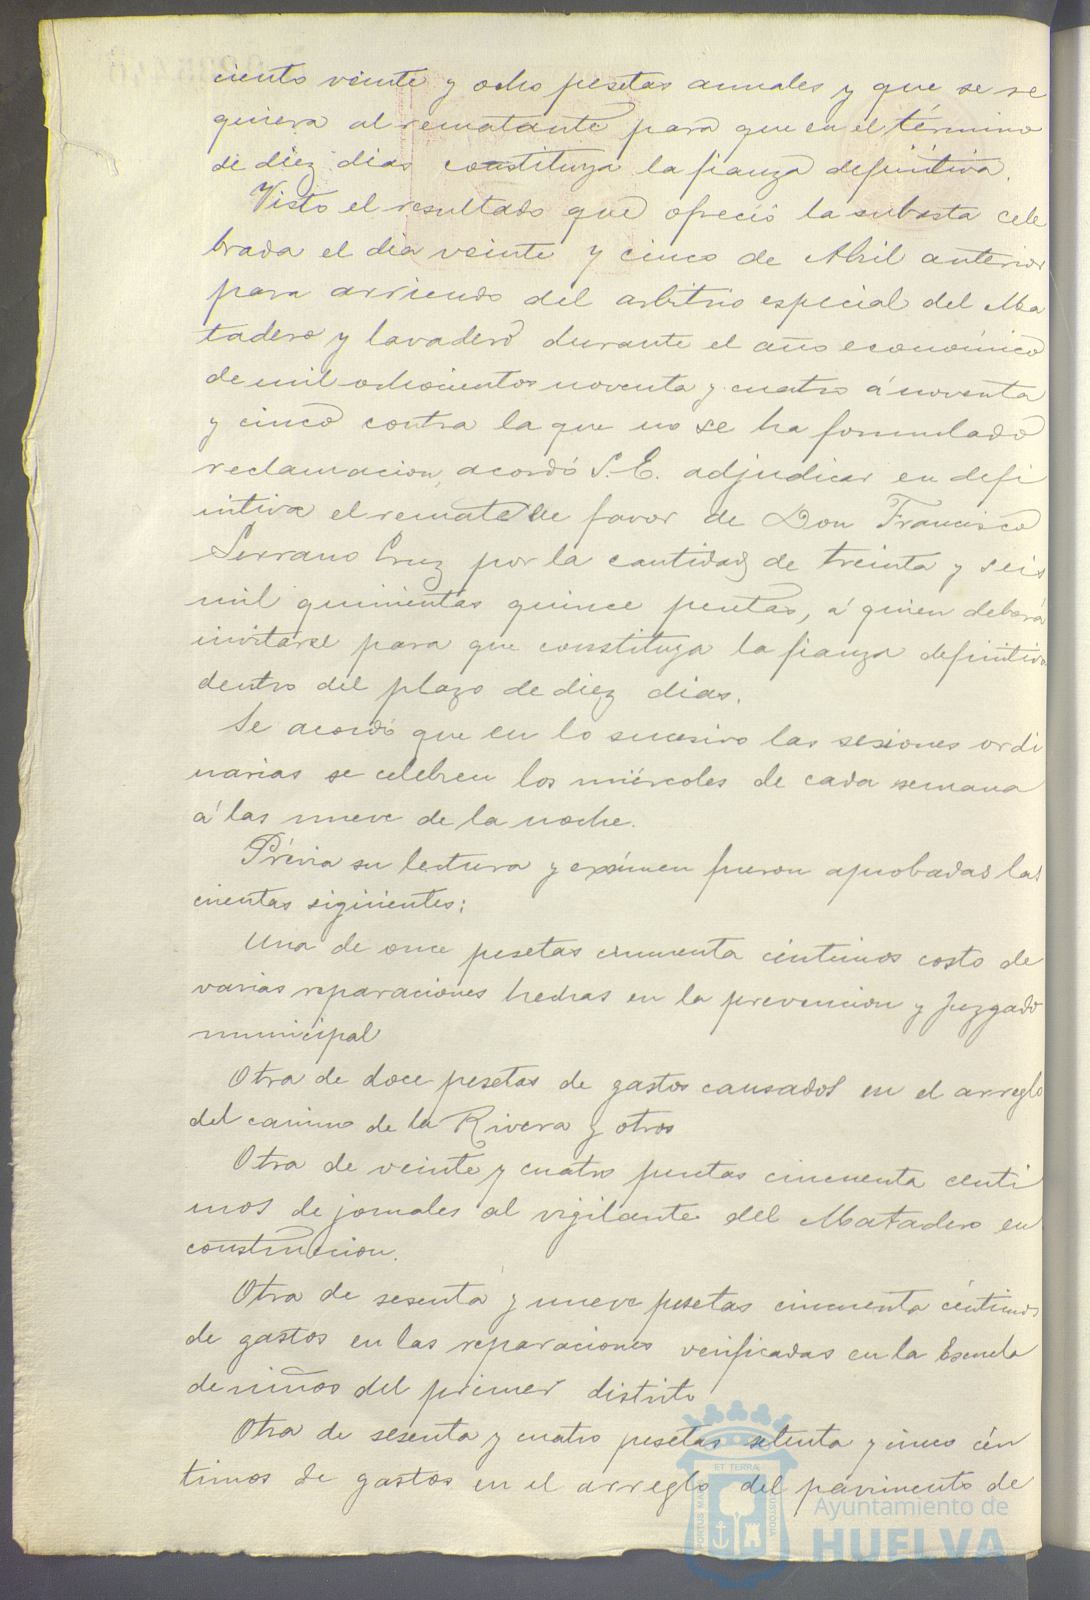 ciento veinte y ocho pesetas anuales y que se re
quiera al rematante para que en el término
de diez dias constituya la fianza definitiva.
Visto el resultado que ofreció la subasta cele
brada el dia veinte y cinco de Abril anterior
para arriendo del arbitrio especial del Ma
tadero y lavadero durante el año económico
de mil ochocientos noventa y cuatro á noventa
y cinco contra la que no se ha formulado
reclamacion, acordó S.E. adjudicar en defi
nitiva el remate de favor de Don Francisco
Serrano Cruz por la cantidad de treinta y seis
mil quinientas quince pesetas, á quien deberá
invitarse para que constituya la fianza definitiva
dentro del plazo de diez dias.
Se acordó que en lo sucesivo las sesiones ordi
narias se celebren los miércoles de cada semana
á las nueve de la noche.
Prévia su lectura y exámen fueron aprobadas las
cuentas siguientes:
Una de once pesetas cincuenta céntimos costo de
varias reparaciones hechas en la prevencion y Juzgado
municipal
Otra de doce pesetas de gastos causados en el arreglo
del camino de la Rivera y otros
Otra de veinte y cuatro pesetas cincuenta centi
mos de jornales al vigilante del Matadero en
construccion.
Otra de sesenta y nueve pesetas cincuenta céntimos
de gastos en las reparaciones verificadas en la Escuela
de niños del primer distrito
Otra de sesenta y cuatro pesetas setenta y cinco cén
timos de gastos en el arreglo del pavimento de
ET TERRA
Ayuntamiento de
HUELVA